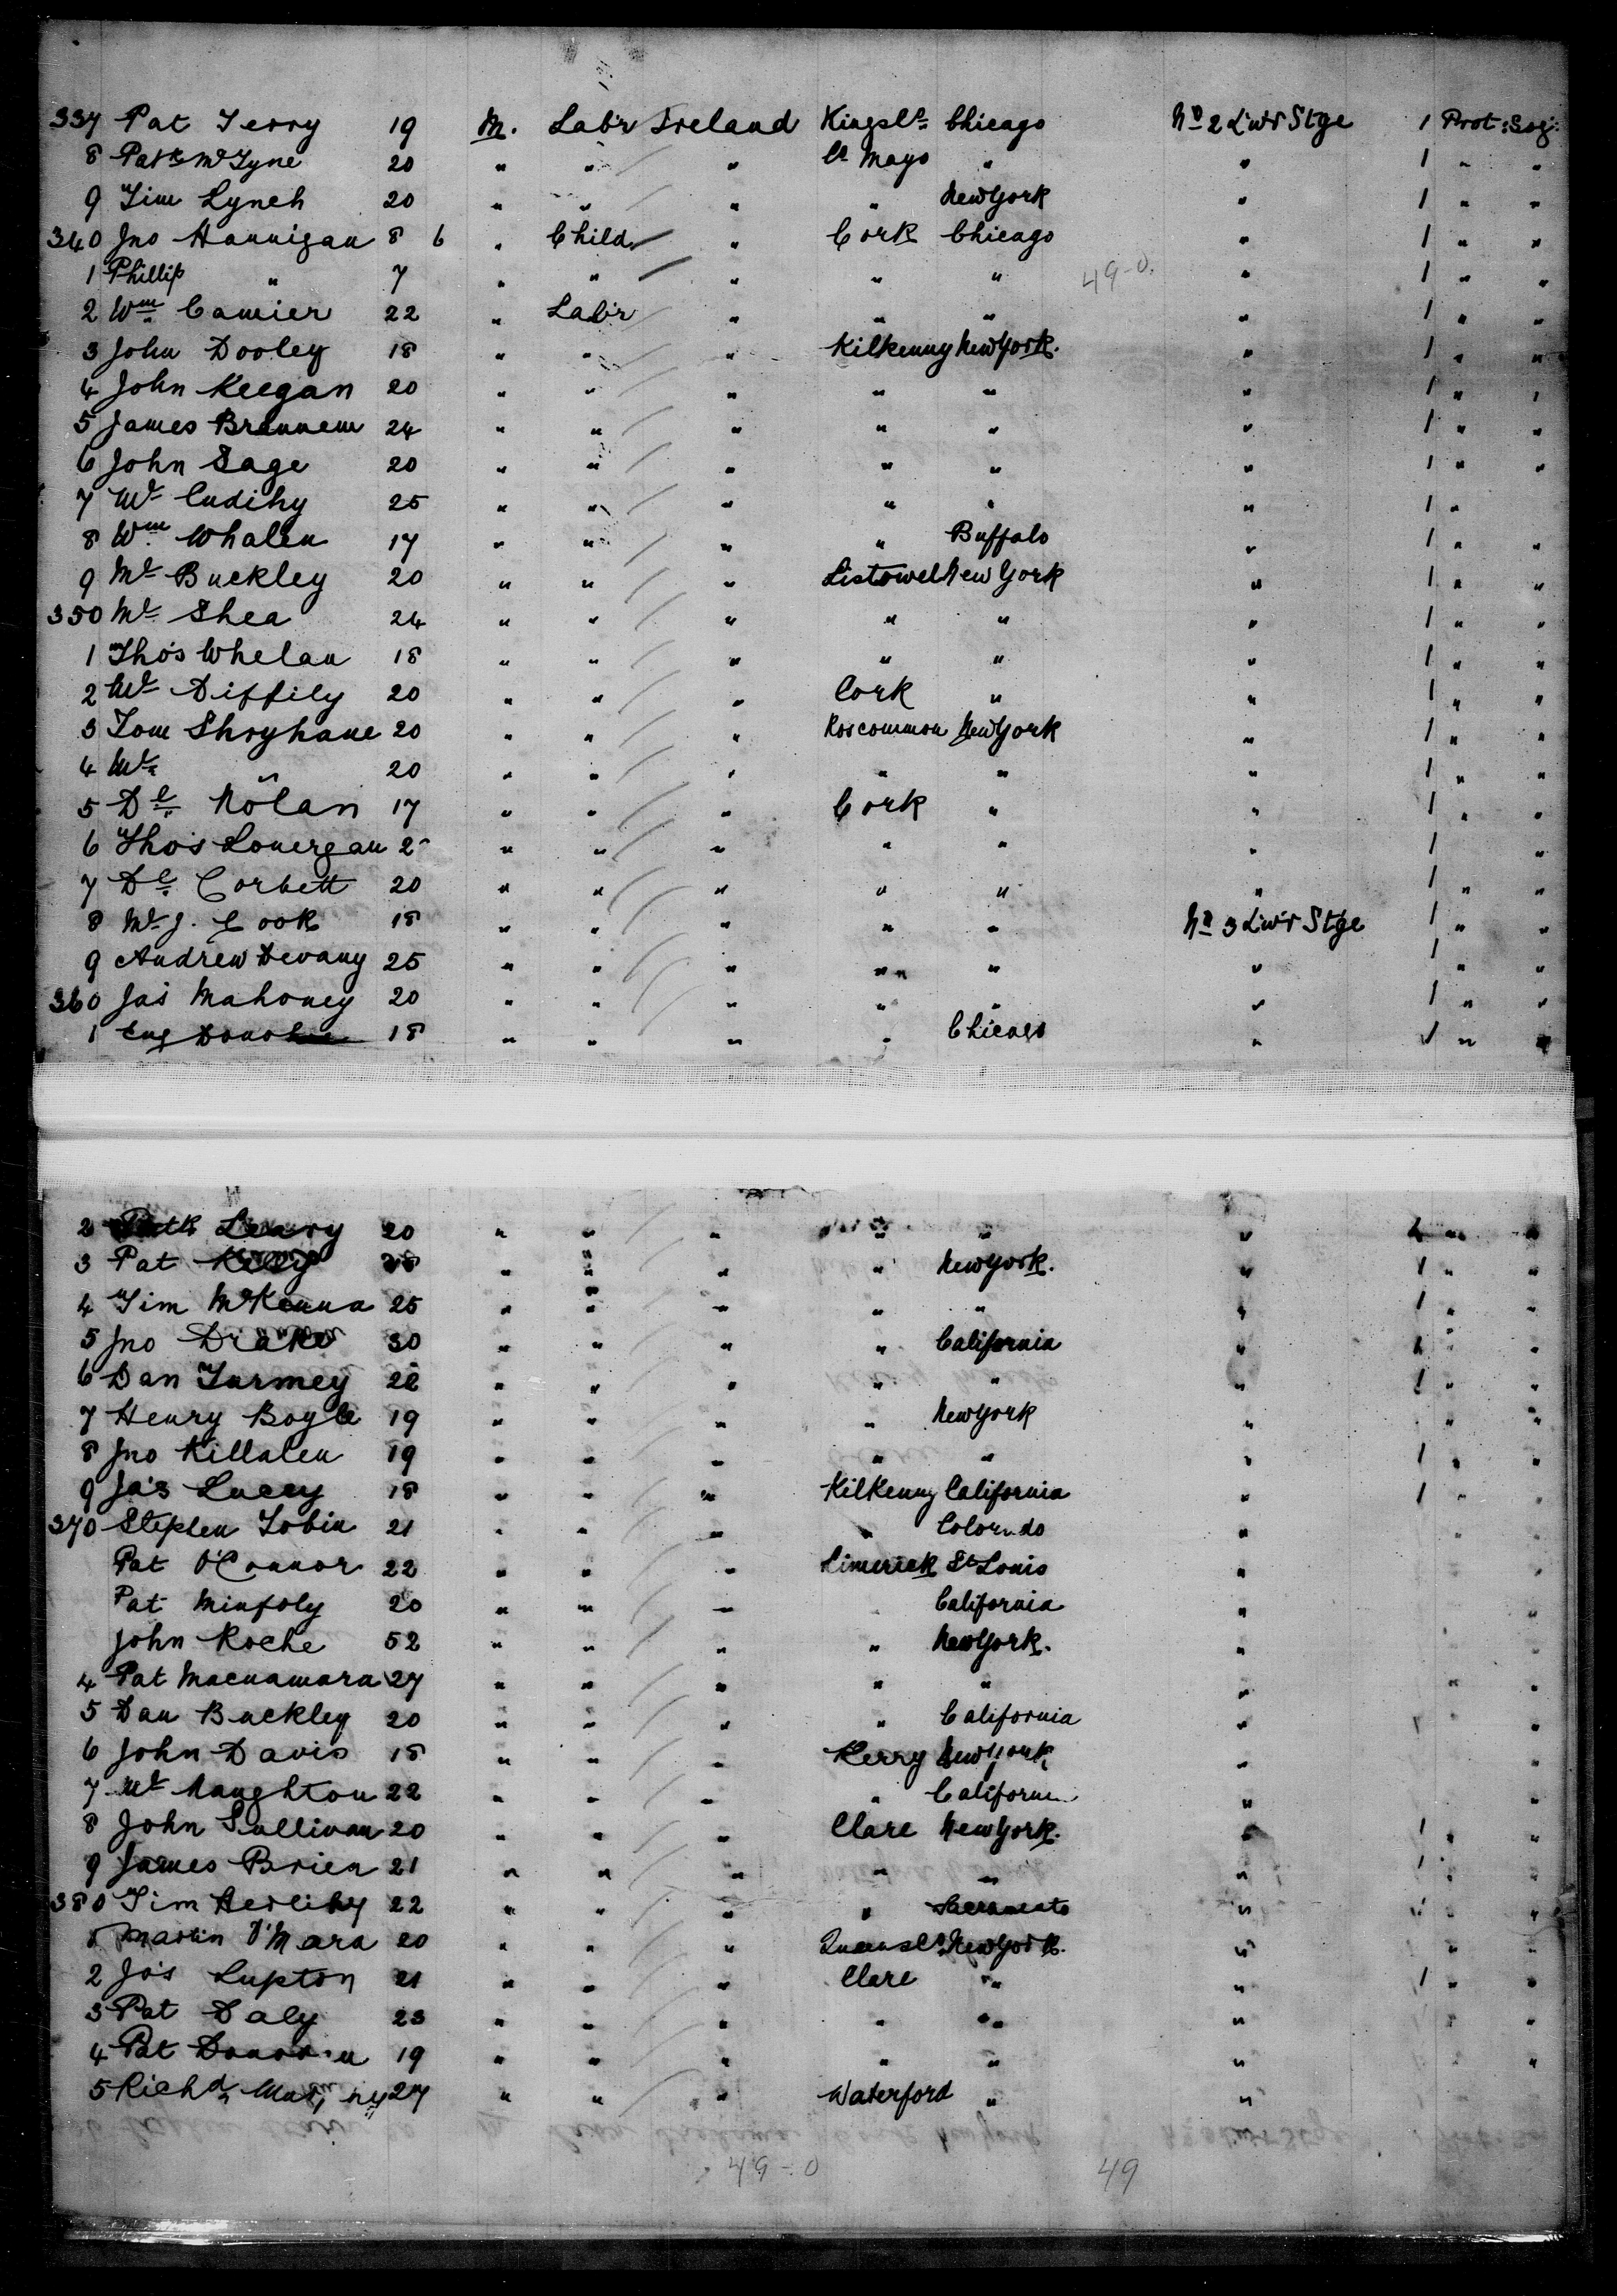 337 Pat Terry 19 M. Lab'r Ireland Kings Co. Chicago No 2 Lw'r Stge 1 Prot: Soj:
8 Patk McTyne 20 " " " Co Mayo " " 1 " "
9 Tim Lynch 20 " " " " New York " 1 " "
340 Jno Hannigan 8 6 " Child " Cork Chicago " 1 " "
1 Phillip " 7 " " " " " 49-0. " 1 " "
2 Wm Camier 22 " Lab'r " " " " 1 " "
3 John Dooley 18 " " " Kilkenny New York. " 1 " "
4 John Keegan 20 " " " " " " 1 " "
5 James Brennem 24 " " " " " " 1 " "
6 John Sage 20 " " " " " " 1 " "
7 Ml Cudihy 25 " " " " " " 1 "
8 Wm Whalen 17 " " " " Buffalo " 1 " "
9 Ml Buckley 20 " " " Listowel New York " 1 " "
350 Ml Shea 24 " " " " " " 1 " "
1 Tho's Whelan 18 " " " " " " 1 " "
2 Ml Diffily 20 " " " Cork " " 1 " "
3 Tom Shoyhane 20 " " " Roscommon New York " 1 " "
4 Ml " 20 " " " " " " 1 " "
5 Dl Nolan 17 " " " Cork " " 1 " "
6 Tho's Lonergan " " " " " " 1 "
7 Dl Corbett 20 " " " " " " 1 " "
8 Ml J. Cook 18 " " " " " No 3 Lw'r Stge 1 " "
9 Andrew Devany 25 " " " " " " 1 " "
360 Ja's Mahoney 20 " " " " " " 1 " "
1 Eug 18 " " " " Chicago " 1 " "
2 Patk Leary 20 " " " " " " " "
3 Pat Kelly " " " " New York. " 1 " "
4 Tim McKenna 25 " " " " " " 1 " "
5 Jno Drake 30 " " " " California " " "
6 Dan Turmey 22 " " " " " " 1 " "
7 Henry Boyle 19 " " " " New York " " "
8 Jno Killalen 19 " " " " " " 1 " "
9 Ja's Lucey 18 " " " Kilkenny California " 1 " "
370 Stephen Tobin 21 " " " " Colorado " " "
Pat O'Connor 22 " " " Limerick St Louis "
Pat Minfoly 20 " " " " California " "
John Roche 52 " " " " New York. " "
4 Pat Macnamara 27 " " " " " " " "
5 Dan Buckley 20 " " " " California " 1 " "
6 John Davis 18 " " " Kerry New York " "
7 Ml Naughton 22 " " " " California " "
8 John Sullivan 20 " " " Clare New York. " 1 " "
9 James Brien 21 " " " " " " 1 " "
380 Tim Herlihy 22 " " " " Sacramento " " " "
Martin O'Mara 20 " " " Queens Co. New York. " " "
2 Jo's Lupton 21 " " " Clare " " 1 " "
3 Pat Daly 23 " " " " " " " "
4 Pat Donovan 19 " " " " " " "
5 Richd 27 " " " Waterford " "
49-0 49